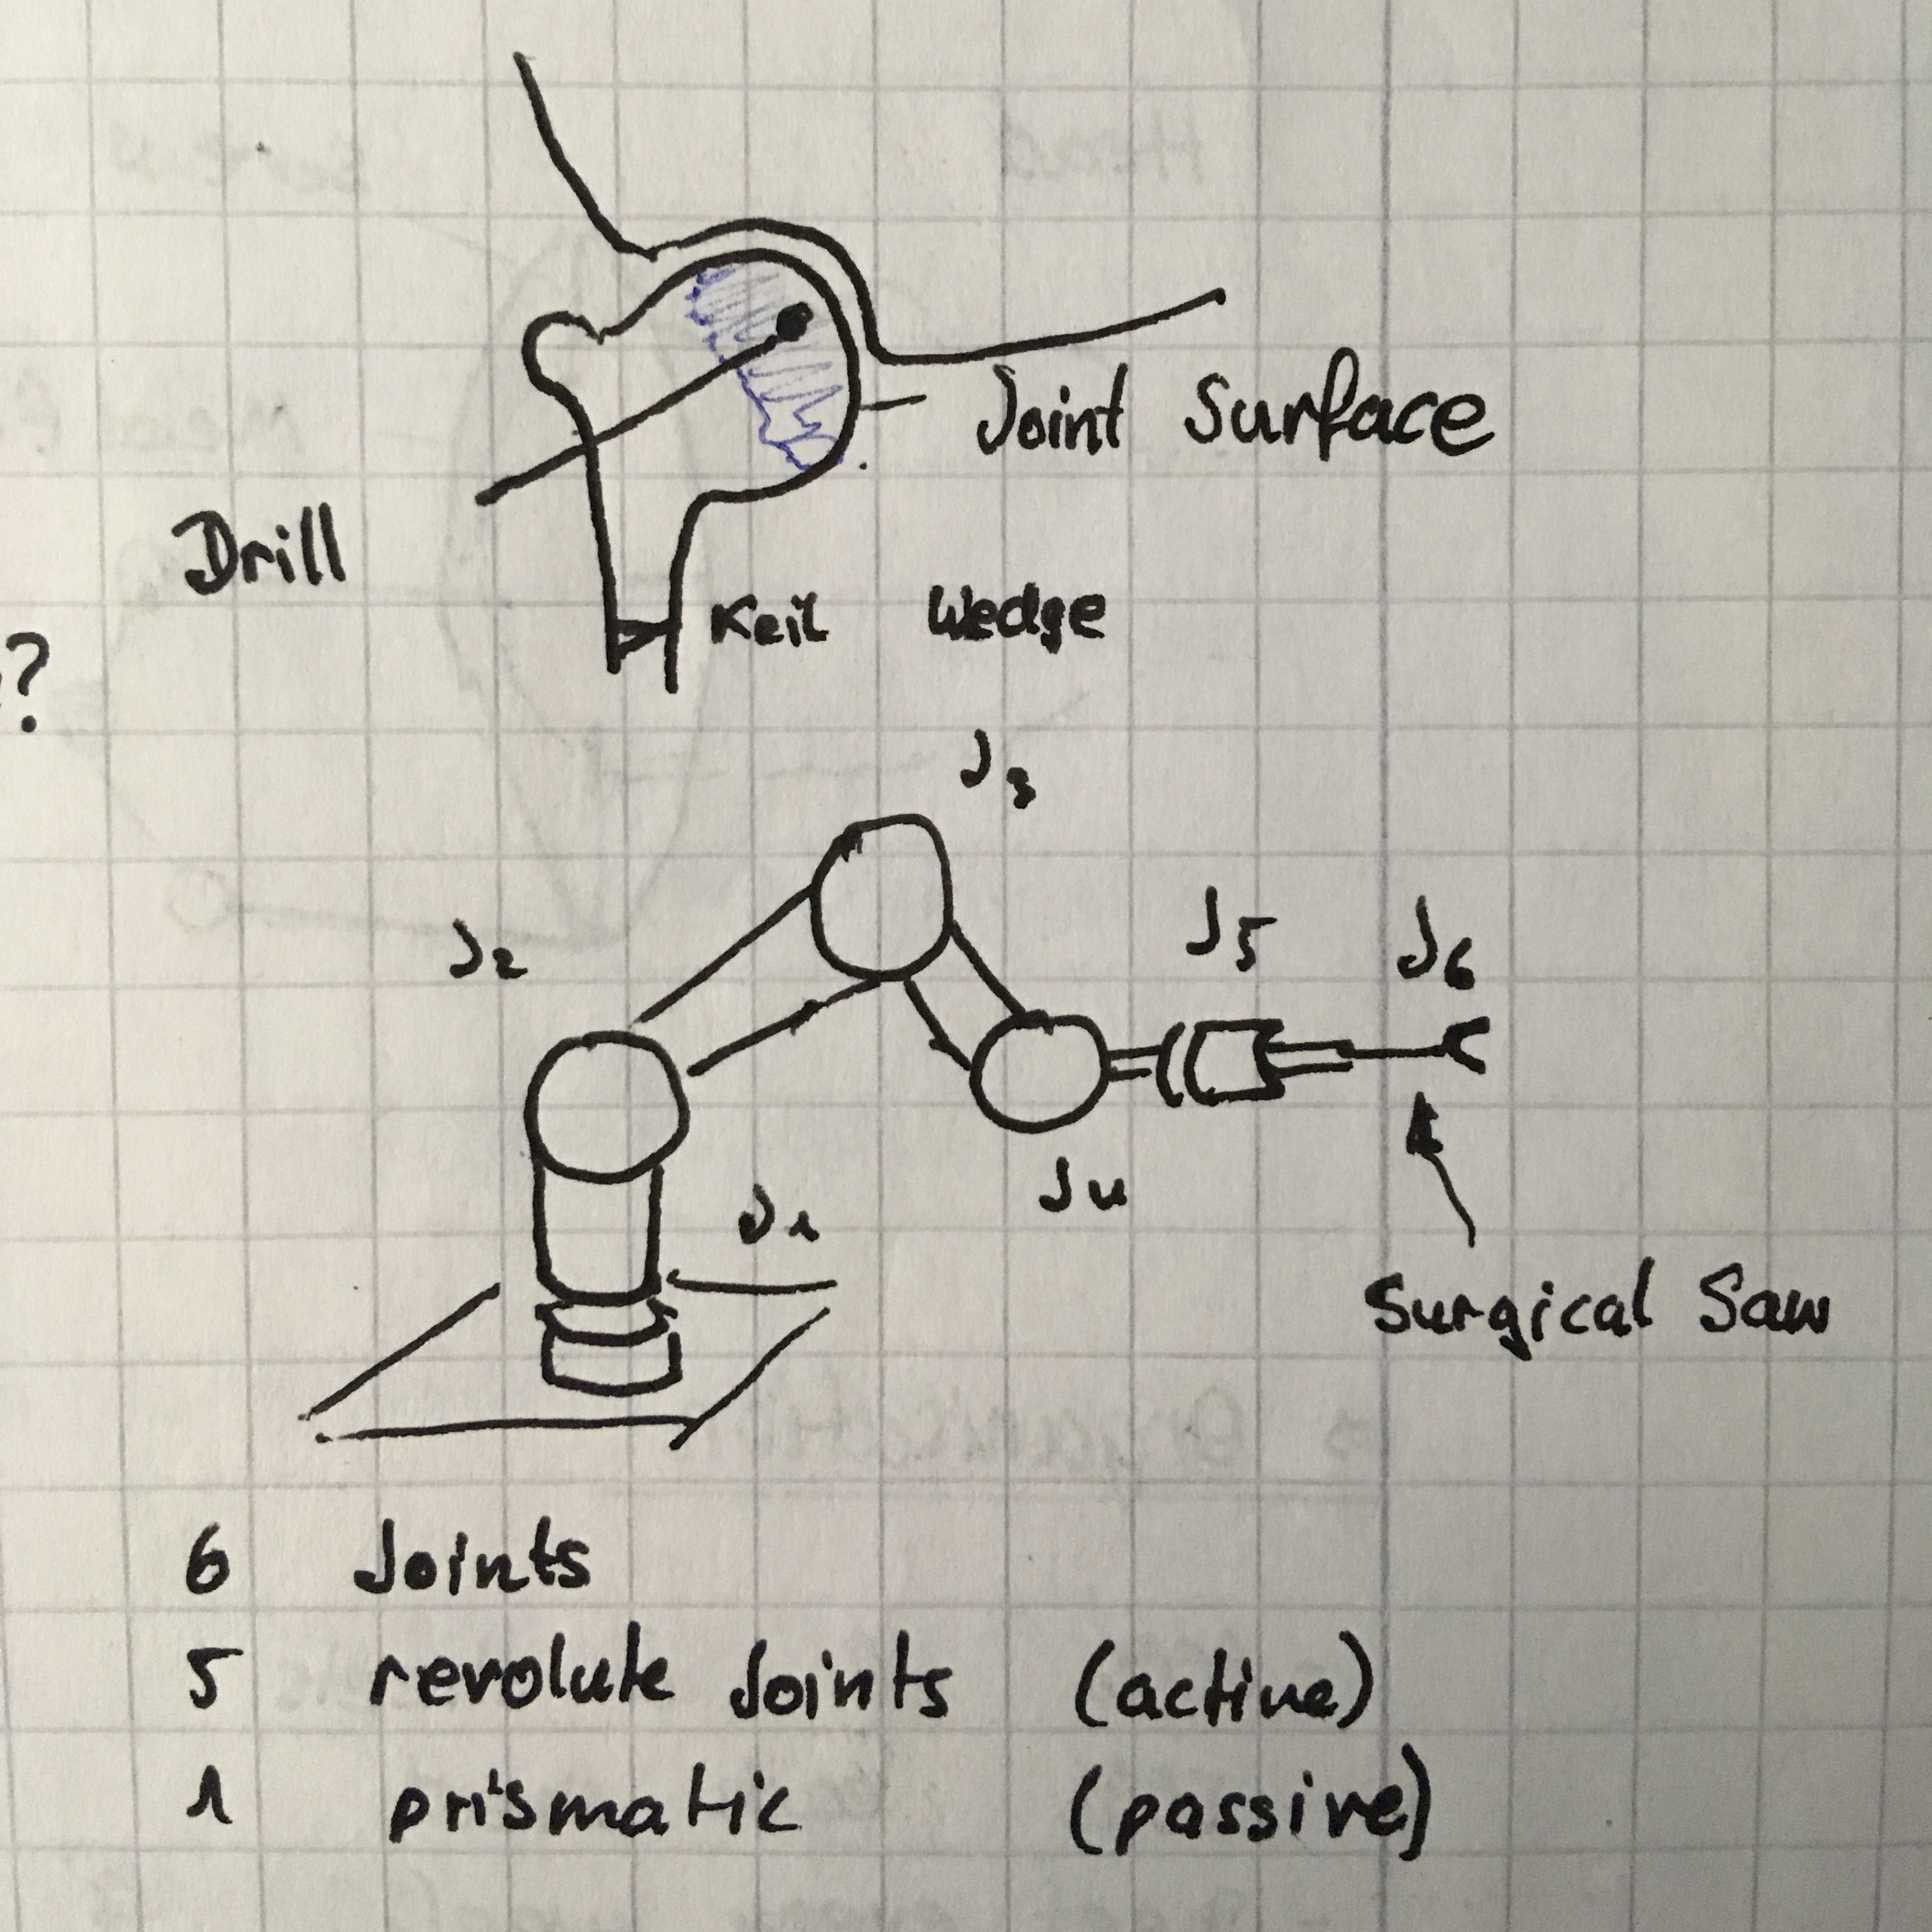 ?
Drill
Joint Surface
Keil Wedge
J2
J3
J1
J4
J5
J6
Surgical Saw
6 Joints
5 revolute Joints (active)
1 prismatic (passive)